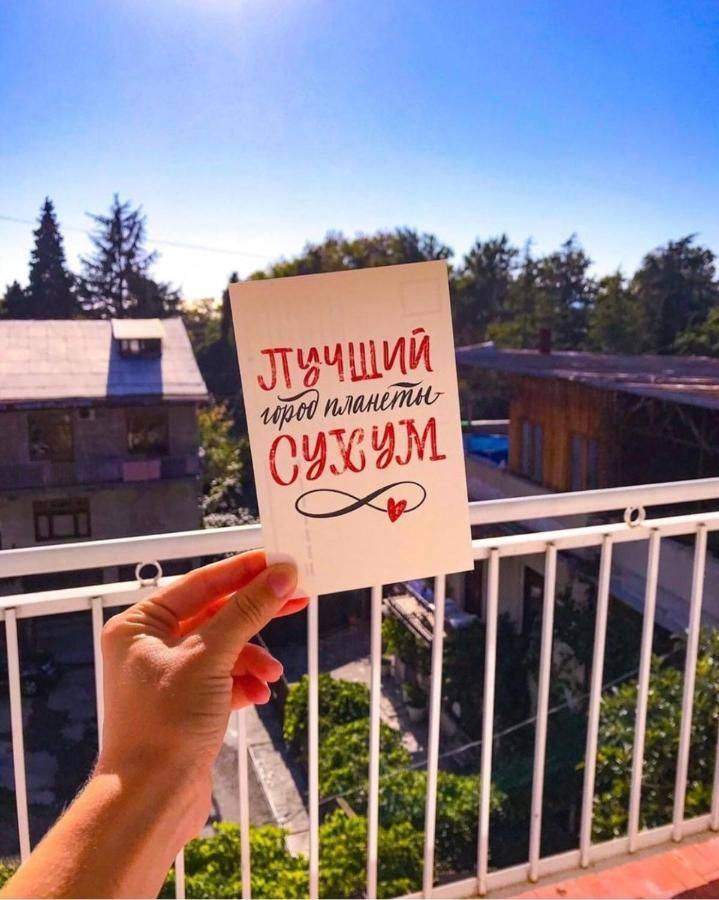 ЛУЧШИЙ
город планеты
СУХУМ